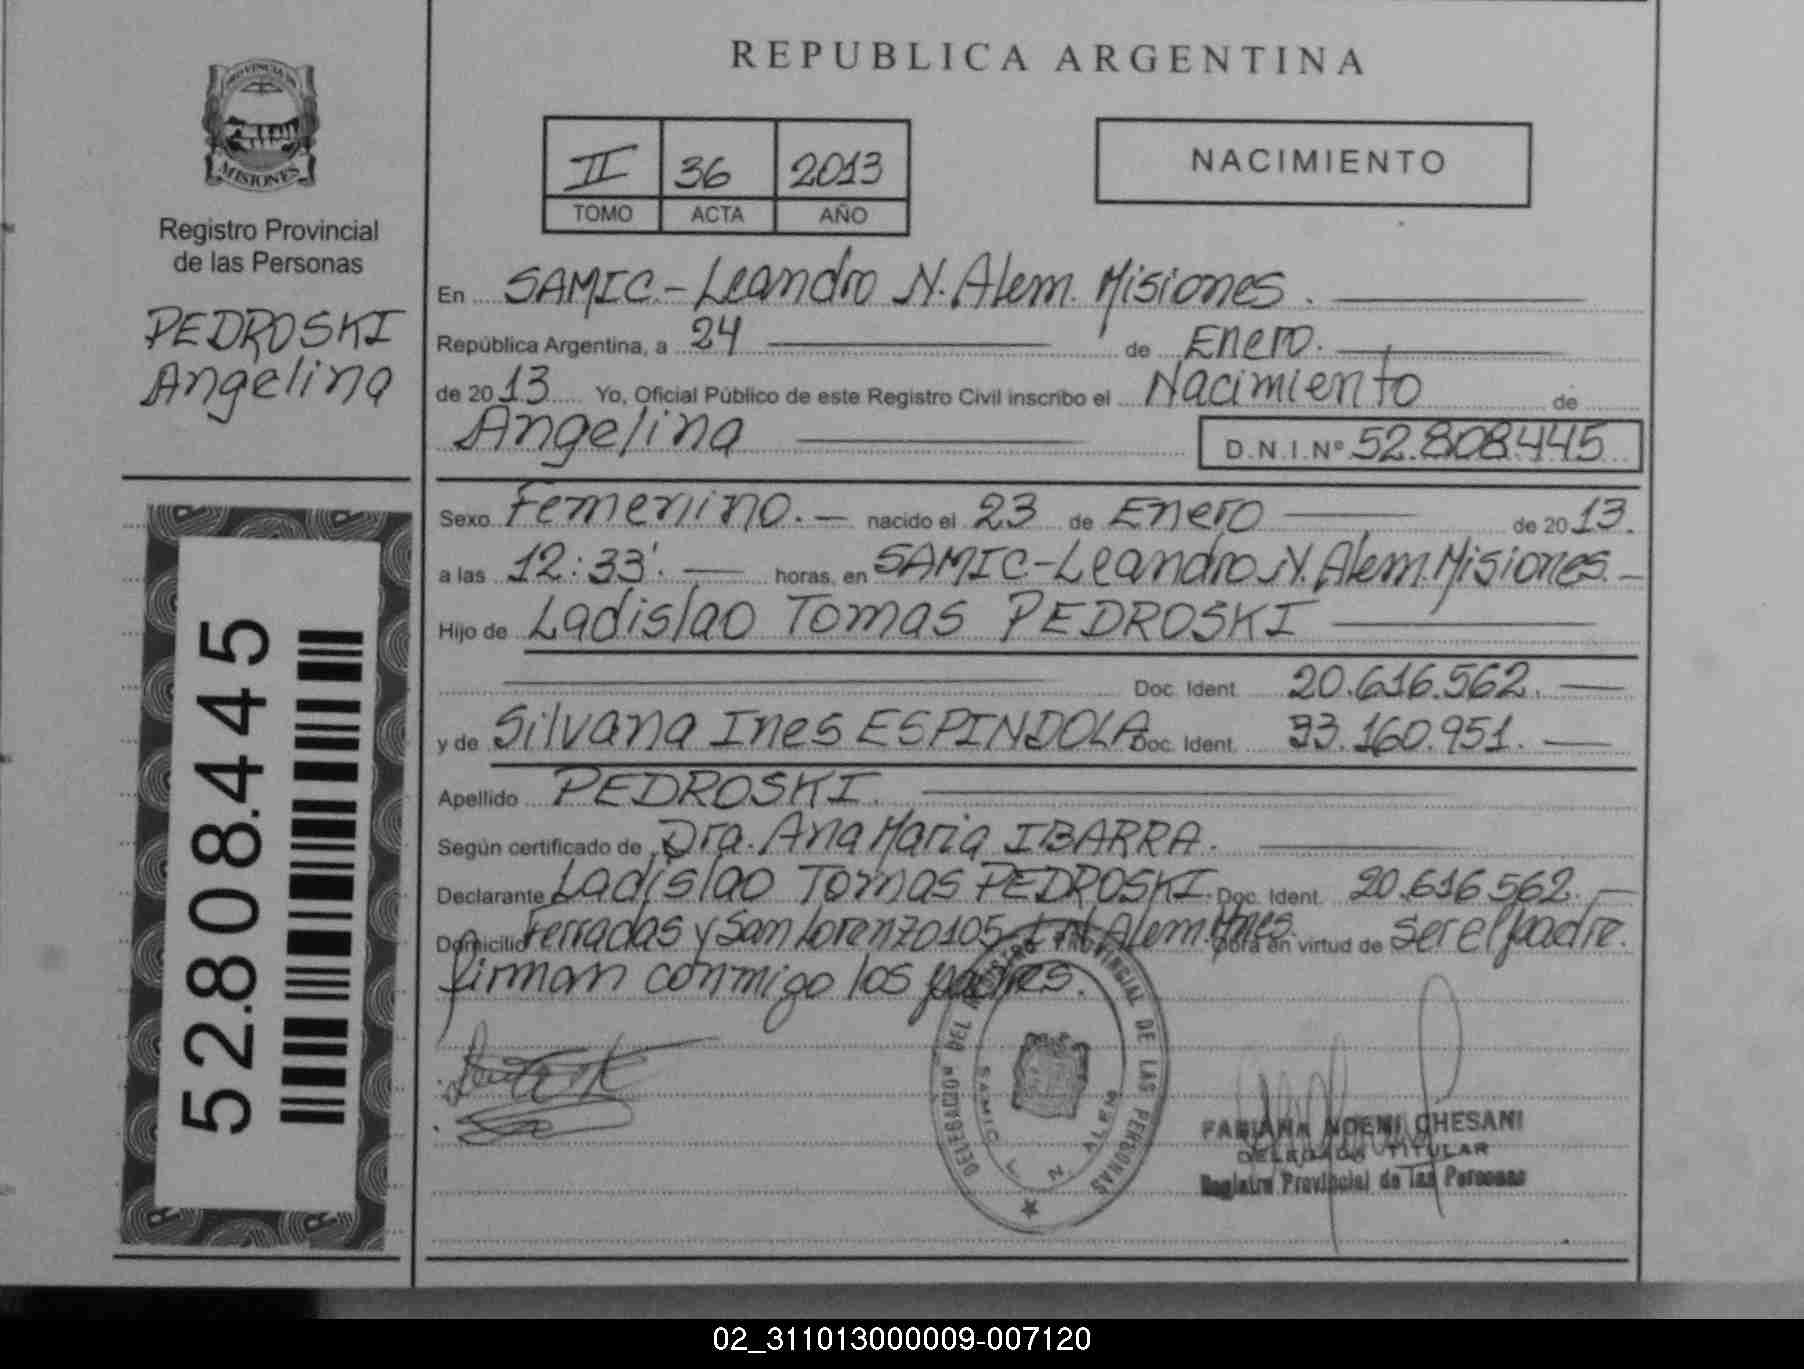 REPUBLICA ARGENTINA
PROVINCIA DE
MISIONES
Registro Provincial
de las Personas
PEDROSKI
Angelina
52.808.445
II 36 2013
TOMO ACTA AÑO
NACIMIENTO
En SAMIC.- Leandro N. Alem. Misiones.
República Argentina, a 24 de Enero.
de 2013 Yo, Oficial Público de este Registro Civil inscribo el Nacimiento de
Angelina D.N.I.Nº 52.808.445
Sexo Femenino.- nacido el 23 de Enero de 2013.
a las 12:33'. horas, en SAMIC-Leandro N. Alem. Misiones.-
Hijo de Ladislao Tomas PEDROSKI
Doc. Ident. 20.616.562.
y de Silvana Ines ESPINDOLA Doc. Ident. 33.160.951.
Apellido PEDROSKI.
Según certificado de Dra. Ana Maria IBARRA.
Declarante Ladislao Tomas PEDROSKI. Doc. Ident. 20.616.562.-
Domicilio Ferradas y San Lorenzo 105 L.N. Alem. Mnes. Obra en virtud de ser el padre.
firman conmigo los padres.
DELEGACION DEL REGISTRO PROVINCIAL DE LAS PERSONAS
SAMIC L. N. ALEM
FABIANA NOEMI CHESANI
DELEGADA TITULAR
Registro Provincial de las Personas
02_311013000009-007120